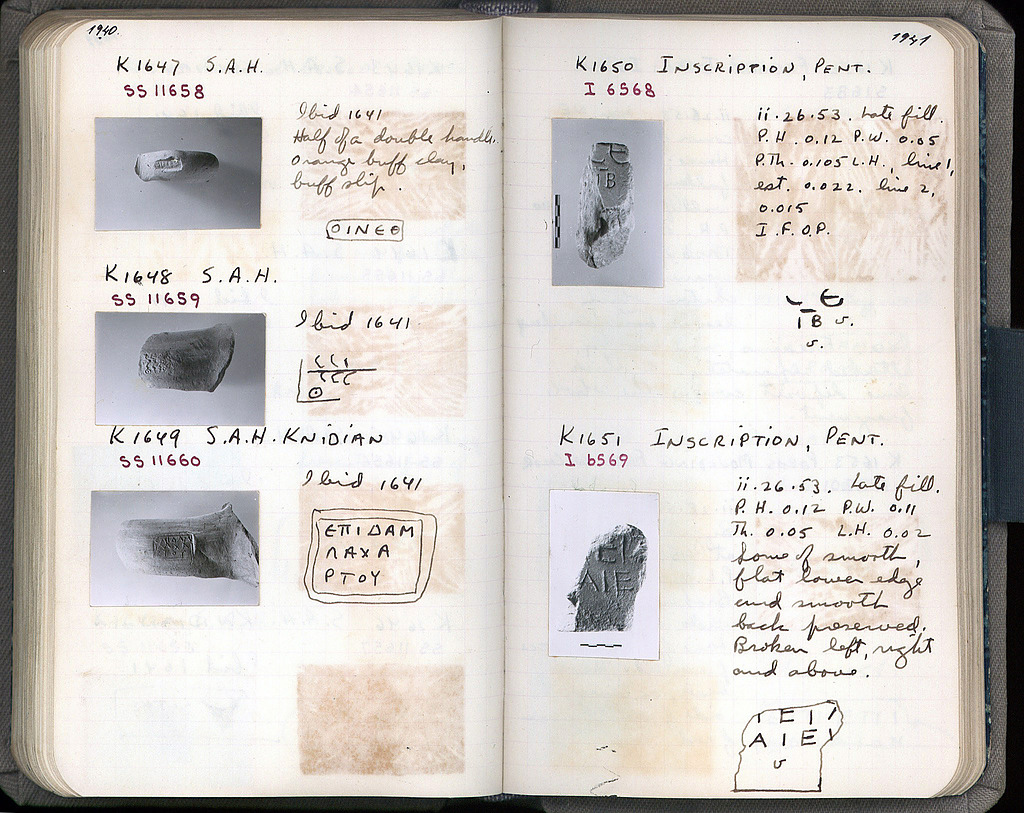 1940.
K1647 S.A.H.
SS 11658
Ibid 1641
Half of a double handle.
Orange buff clay,
buff slip.
ΟΙΝΕΘ
K1648 S.A.H.
SS 11659
Ibid 1641.
K1649 S.A.H. KNIDIAN
SS 11660
Ibid 1641
ΕΠΙΔΑΜ
ΛΑΧΑ
ΡΤΟΥ
1941
K1650 INSCRIPTION, PENT.
I 6568
ii.26.53. Late fill.
P.H. 0.12 P.W. 0.05
P.Th. 0.105 L.H., line 1,
est. 0.022. line 2,
0.015
I.F.O.P.
Є
ΙΒ v.
v.
K1651 INSCRIPTION, PENT.
I 6569
ii.26.53. Late fill.
P.H. 0.12 P.W. 0.11
Th. 0.05 L.H. 0.02
Some of smooth,
flat lower edge
and smooth
back preserved.
Broken left, right
and above.
ΙΕΙ/
ΑΙΕ\
v